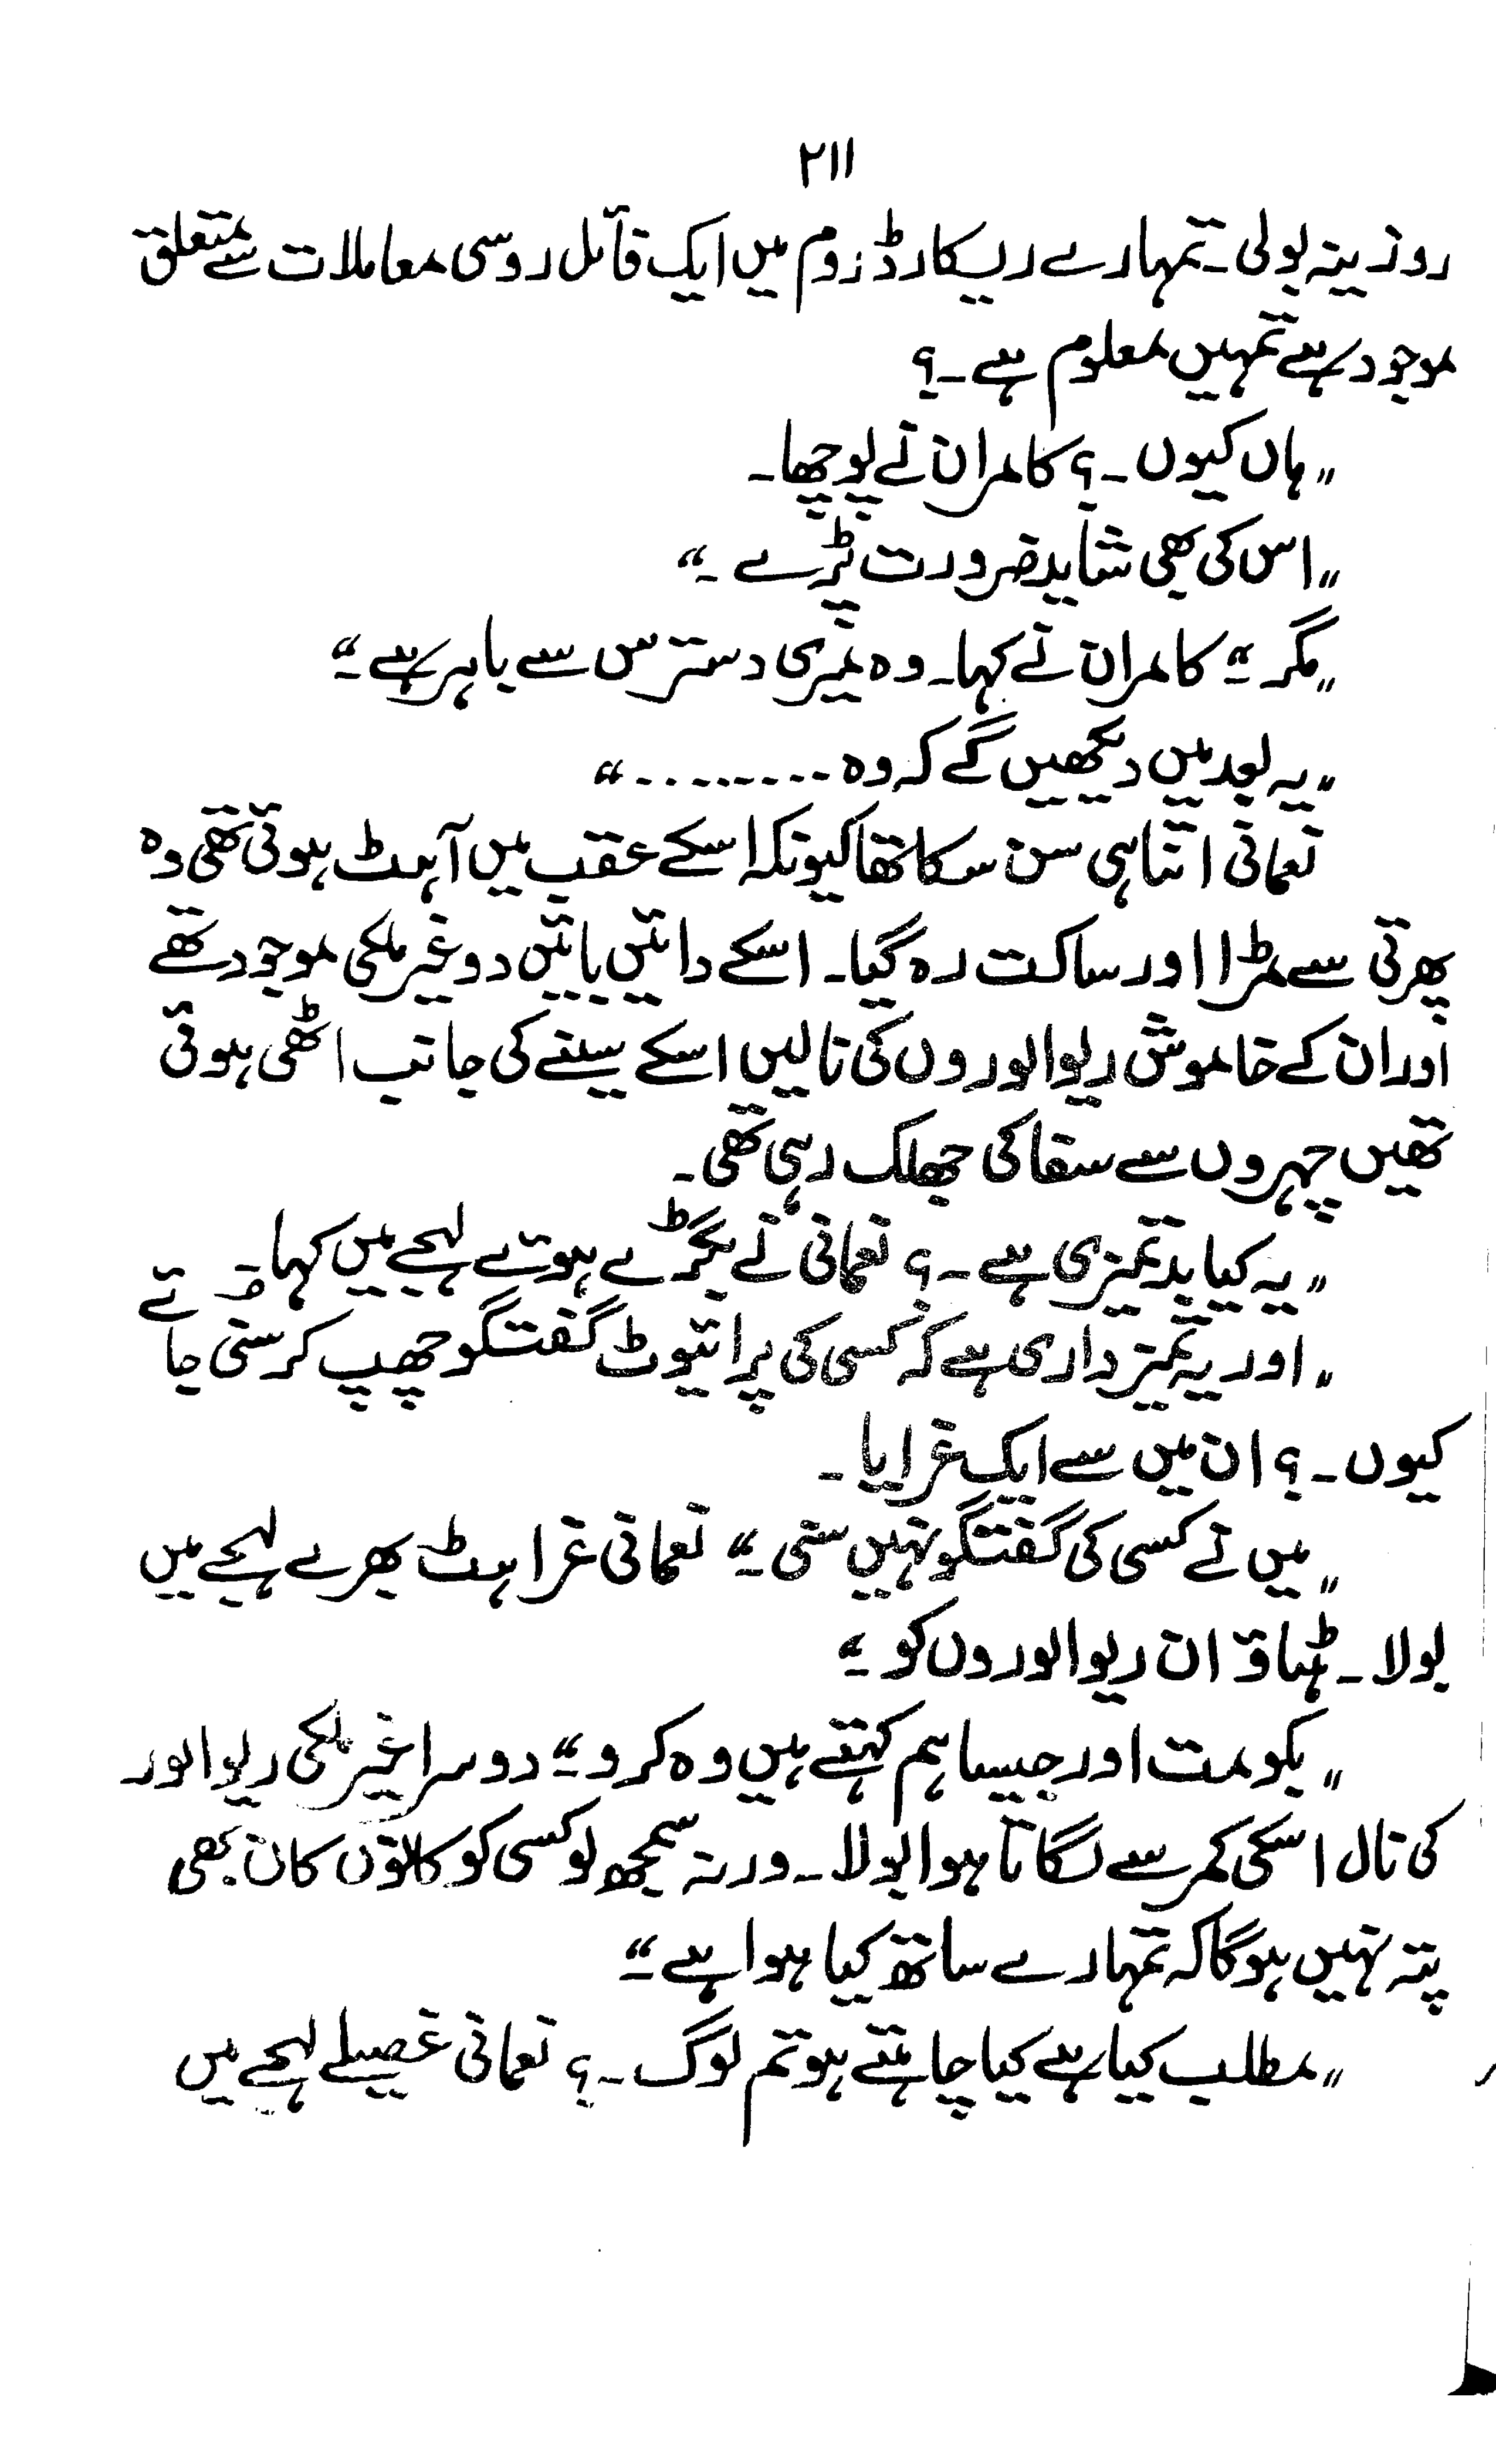 ۲۱۱
روزینہ بولی۔ تمہارے ریکارڈ روم میں ایک فائل روسی معاملات سے متعلق
موجود ہے تمہیں معلوم ہے۔؟
"ہاں کیوں۔؟ کامران نے پوچھا۔
"اس کی بھی شاید ضرورت پڑے۔"
"مگر۔" کامران نے کہا۔ وہ میری دسترس سے باہر ہے۔"
"یہ بعد میں دیکھیں گے کہ وہ ........."
نعمانی اتنا ہی سن سکا تھا کیونکہ اسکے عقب میں آہٹ ہوئی تھی وہ
پھرتی سے مڑا اور ساکت رہ گیا۔ اسکے دائیں بائیں دو غیر ملکی موجود تھے
اور ان کے خاموش ریوالوروں کی نالیں اسکے سینے کی جانب اٹھی ہوئی
تھیں چہروں سے سفاکی جھلک رہی تھی۔
"یہ کیا بدتمیزی ہے۔؟ نعمانی نے بگڑے ہوئے لہجے میں کہا۔
"اور یہ تمیزداری ہے کہ کسی کی پرائیوٹ گفتگو چھپ کر سنی جائے
کیوں۔؟ ان میں سے ایک غرایا۔
"میں نے کسی کی گفتگو نہیں سنی۔" نعمانی غراہٹ بھرے لہجے میں
بولا۔ ہٹاؤ ان ریوالوروں کو۔"
"بکو مت اور جیسا ہم کہتے ہیں وہ کرو۔" دوسرا غیر ملکی ریوالور
کی نال اسکی کمر سے لگاتا ہوا بولا۔ ورنہ سمجھ لو کسی کو کانوں کان بھی
پتہ نہیں ہوگا کہ تمہارے ساتھ کیا ہوا ہے۔"
"مطلب کیا ہے کیا چاہتے ہو تم لوگ۔؟ نعمانی غصیلے لہجے میں